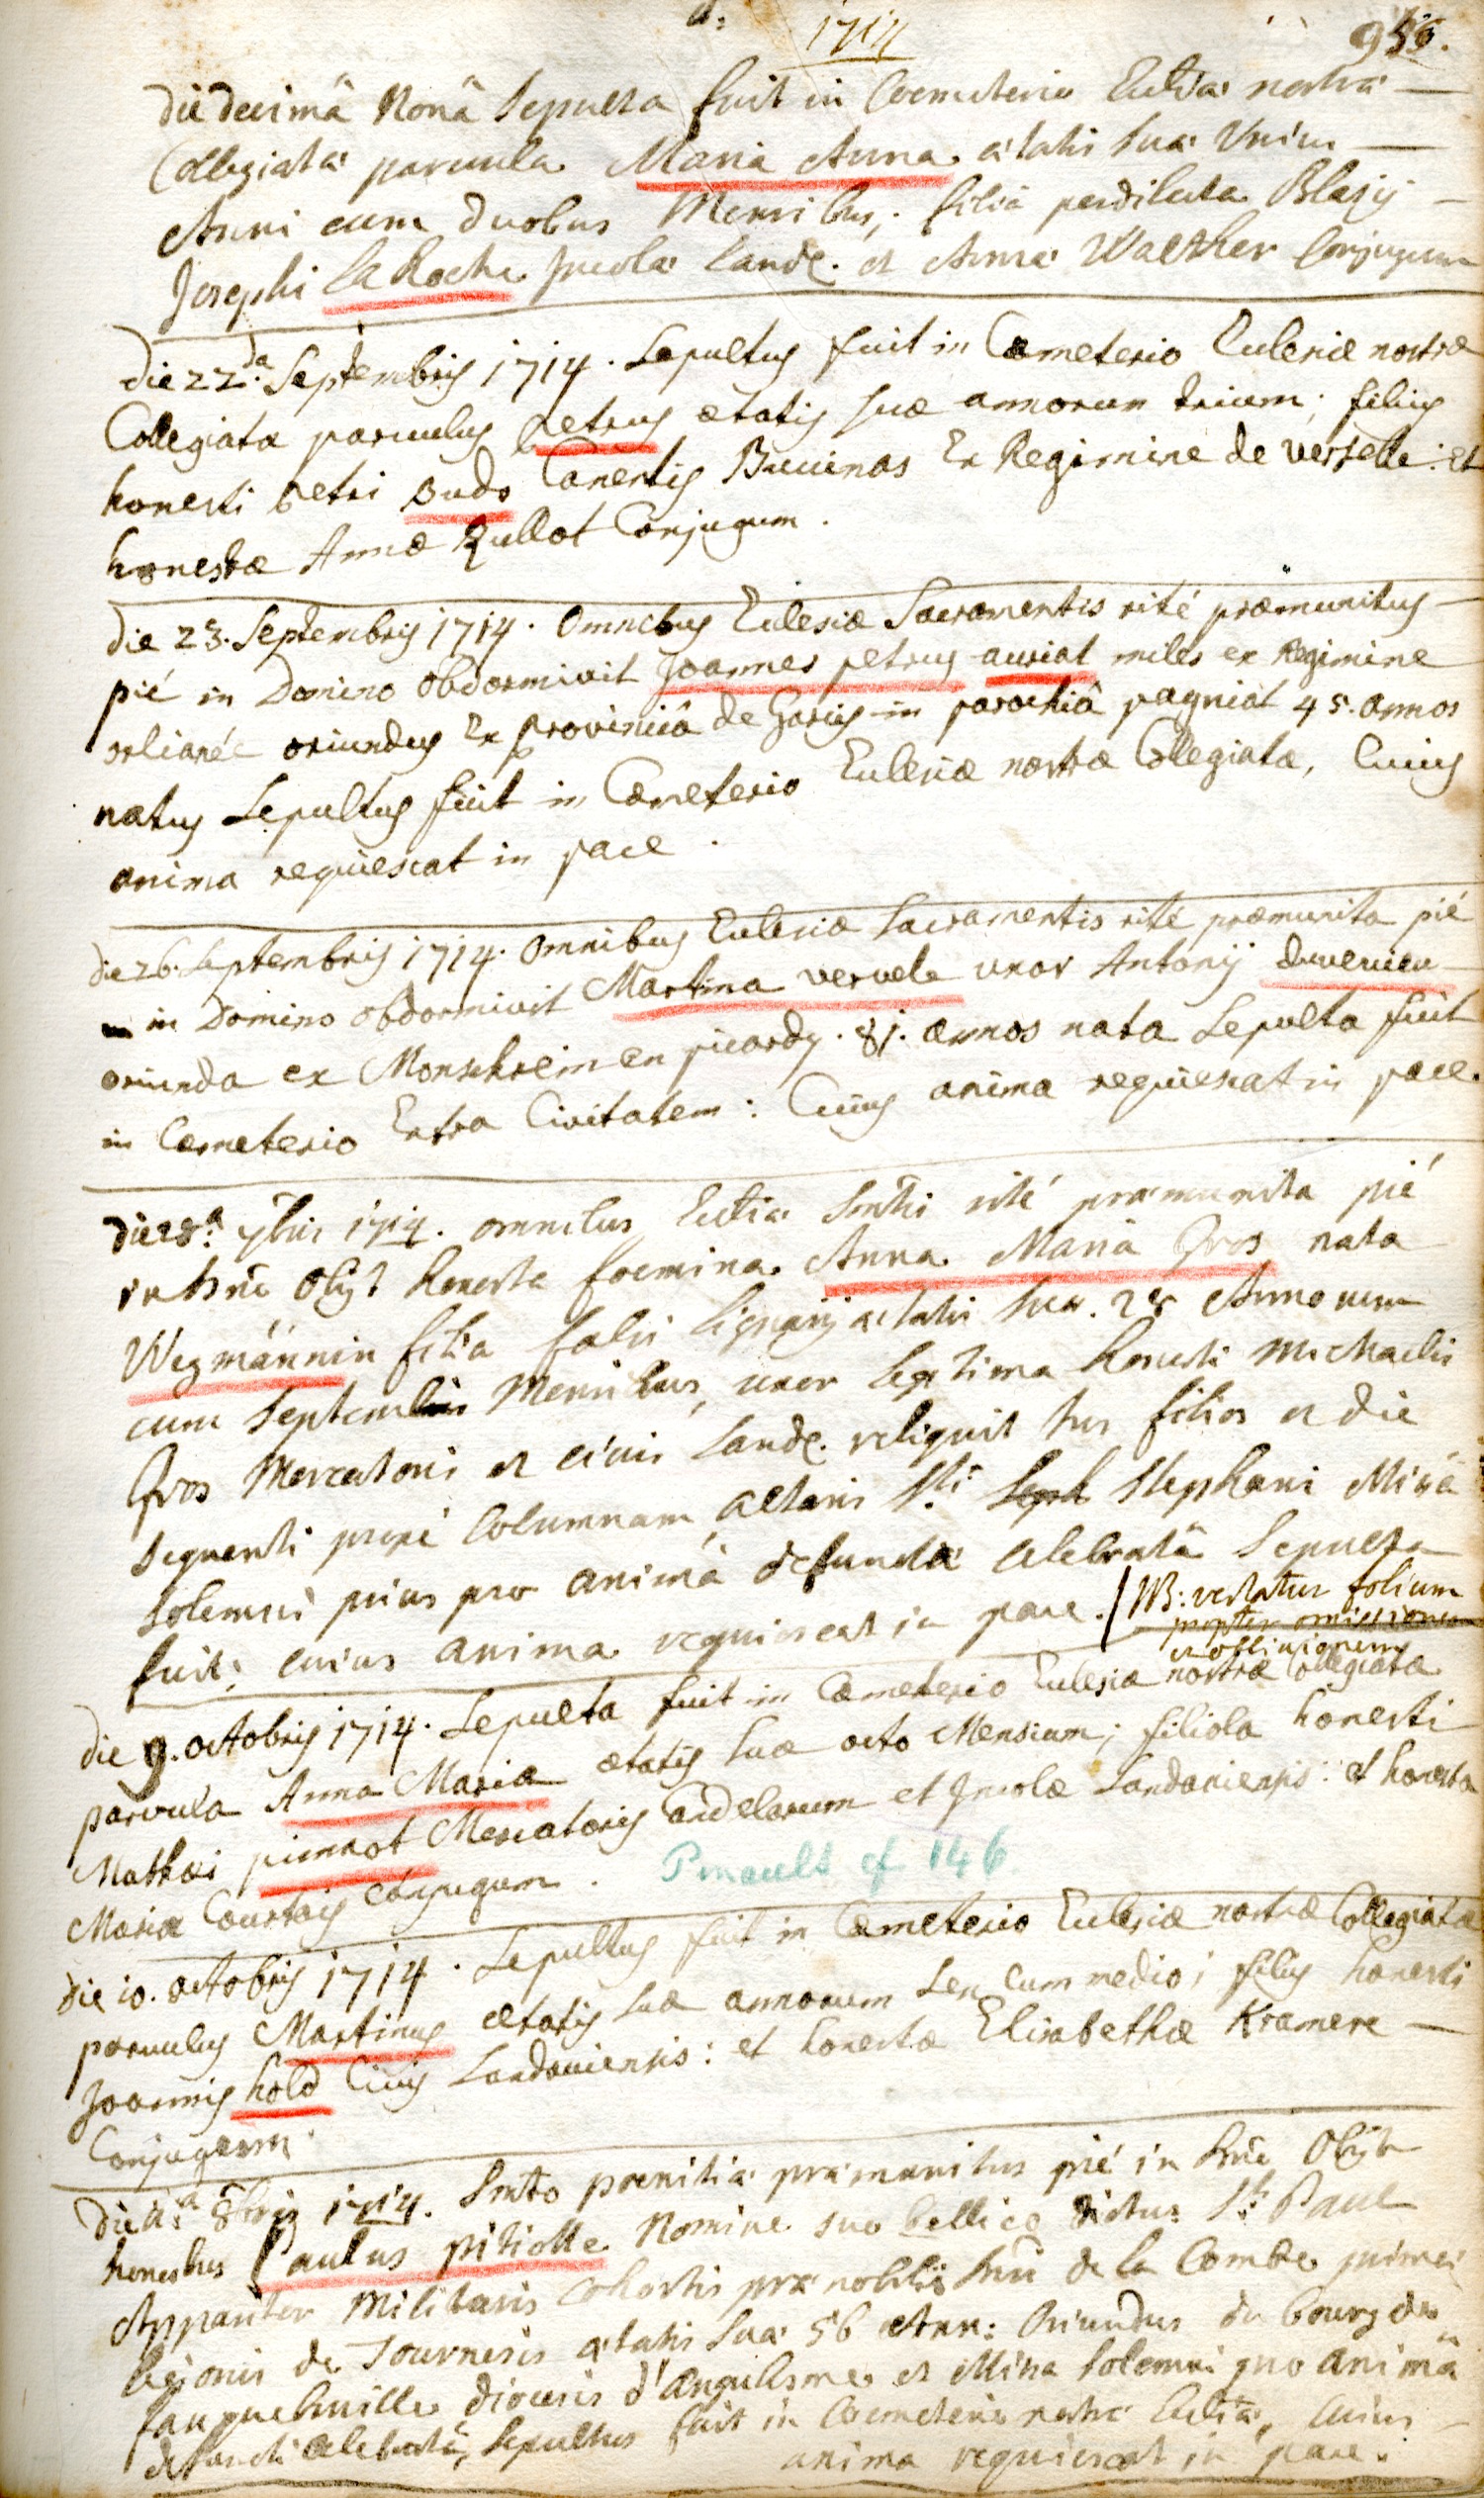 1714
die decimâ Nonâ Sepulta fuit in Coemeterio Eccl͞iae nostrae
Collegiatae parvula Maria Anna aetatis suae Unius
Anni cum duobus Mensibus, filia perdilecta Blasij
Josephi La Roche Incolae Landˢ. et Annae Walther Conjugum
die 22.da Septembris 1714. Sepultus fuit in Coemeterio Ecclesiae nostrae
Collegiatae parvulus petrus aetatis suae annorum trium; filius
honesti petri Budo Canentis Buccinas Ex Regimine de verselle: et
honestae Annae Rullot Conjugum.
die 23. Septembris 1714. Omnibus Ecclesiae Sacramentis rité praemunitus
pié in Domino obdormivit Joannes petrus auriat miles ex Regimine
orliané oriundus Ex provinciâ de in parochiâ pagniat 45. annos
natus Sepultus fuit in Coemeterio Ecclesiae nostrae Collegiatae, Cuius
anima requiescat in pace.
die 26. Septembris 1714. Omnibus Ecclesiae Sacramentis rité praemunita pié
in Domino obdormivit Martina vervele uxor Antonij duvenieu
oriunda ex en picardy. 81. annos nata Sepulta fuit
in Coemeterio Extra Civitatem: Cuius anima requiescat in pace.
die 28.ª 7bris 1714. omnibus Eccl͞iae S͞mtis rité praemunita pié
in D͞no Obijt honesta foemina Anna Maria Gros nata
Wegmännin filia fabri lignarij aetatis suae. 28 Annorum
cum Septem Mensibus, uxor legitima honesti Michaelis
Gros Mercatoris et civis Landˢ. reliquit tres filios et die
sequenti propé Columnam altaris S.ti Steph Stephani Missâ
solemni prius pro animâ defunctae celebratâ Sepulta
fuit; cuius anima requiescat in pace. / NB: vertatur folium
propter omissionem
et oblivionem
die 9. octobris 1714. Sepulta fuit in Coemeterio Ecclesiae nostrae Collegiatae
parvula Anna Maria aetatis suae octo Mensium; filiola honesti
Mathaei pimaot Mercatoris Candelarum et Incolae Landaviensis: et honestae
Mariae Courtois Conjugum. Pinault cf 146
die 10. octobris 1714. Sepultus fuit in Coemeterio Ecclesiae nostrae Collegiatae
parvulus Martinus aetatis suae annorum Sex cum medio; filius honesti
Joannis hold Civis Landaviensis: et honestae Elisabethae Kramere
Conjugum.
die 11.ª 8bris 1714. S͞mto poenitiae praemunitus pié in D͞no Obijt
honestus Paulus pitiolle Nomine suo bellico dictus St. Paul
Apparitor Militaris Cohortis praenobilis D͞ni de la Combe primei
legionis de Tournesis aetatis suae 56 Ann: Oriundus du bourg de
diocesis d'Angulesme et Missa Solemni pro animâ
defuncti celebratâ, Sepultus fuit in Coemeterio nostrae Eccl͞iae, cuius
anima requiescat in pace.